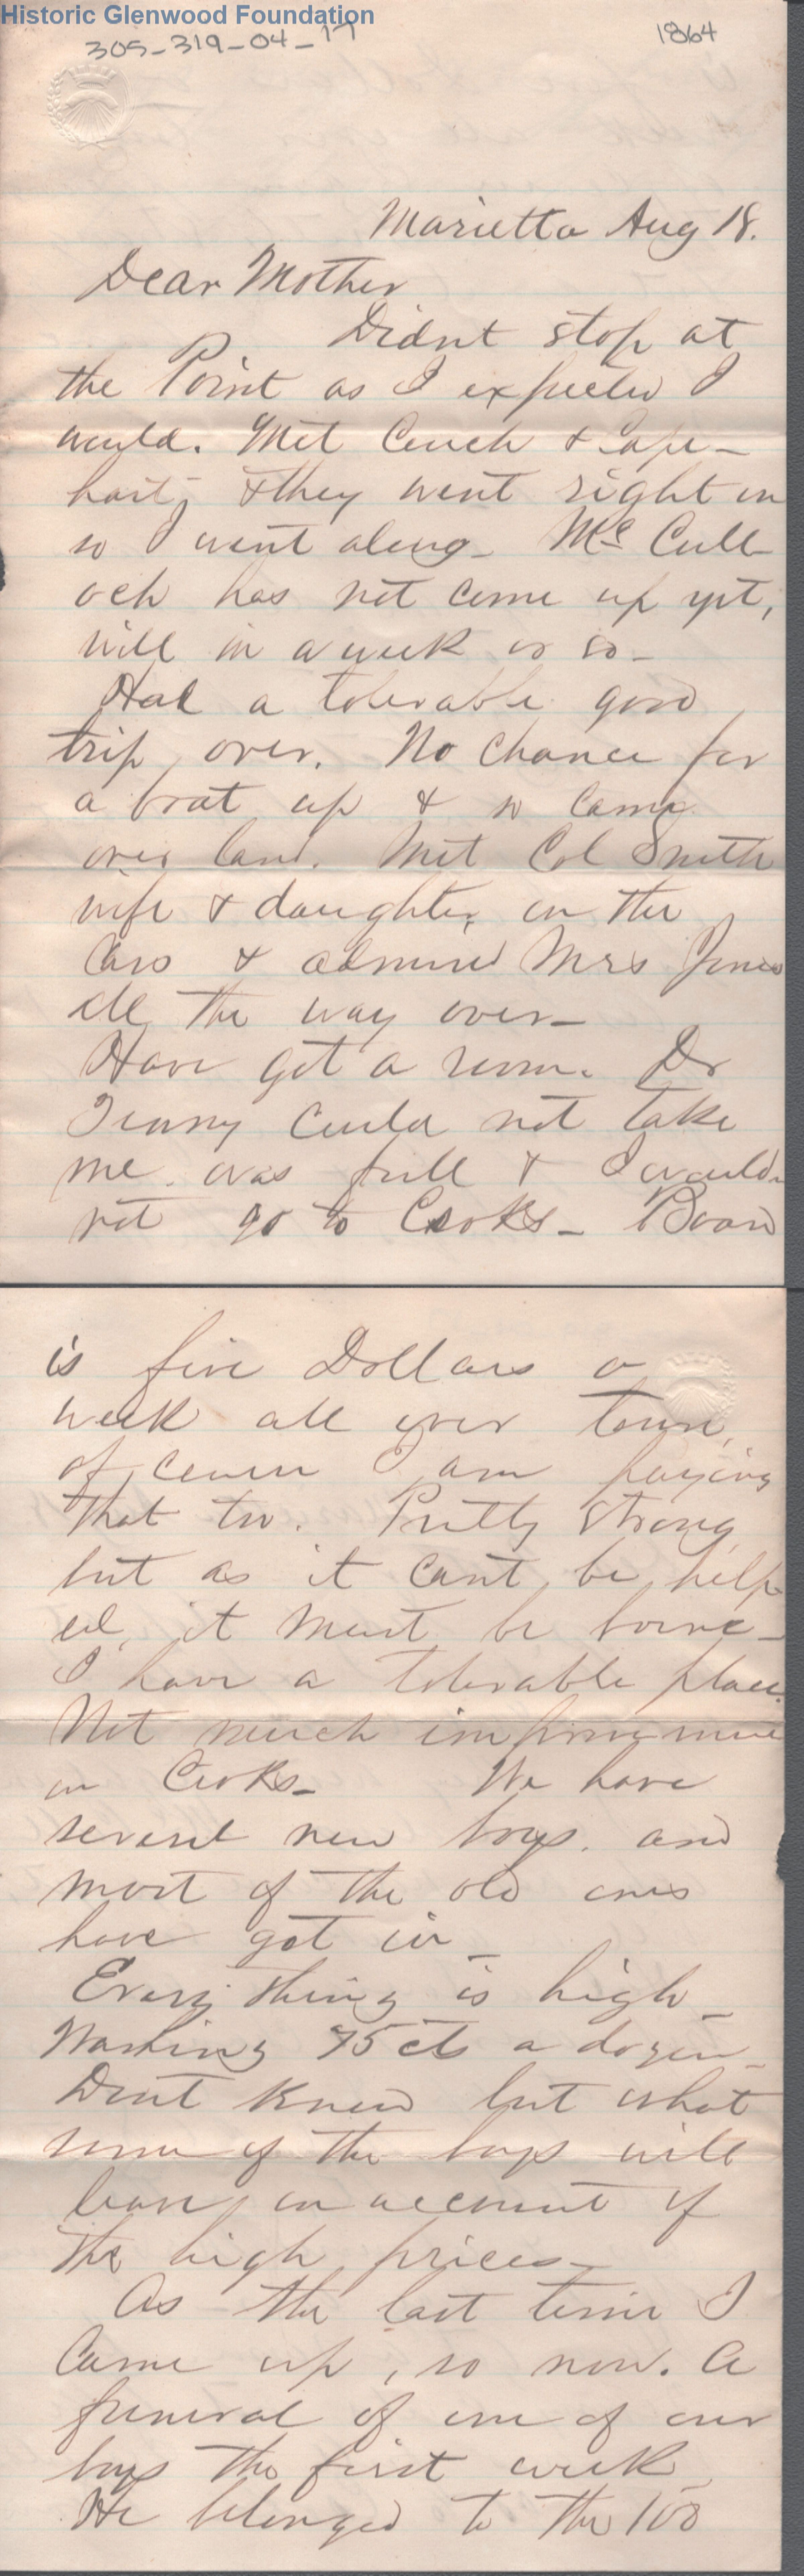 Historic Glenwood Foundation
305-319-04-17
1864
Marietta Aug 18.
Dear Mother
Didnt stop at
the Point as I expected I
would. Met Couch & Cape-
hart, & they went right on
so I went along- Mc Cull-
och has not come up yet,
will in a week or so-
Had a tolerable good
trip over. No chance for
a boat up & so came
over land. Met Col Smith
wife & daughter, on the
Cars & admired Mrs Jones
all the way over-
Have got a room. Dr
could not take
me. was full & I would
not go to Cooks- Board
is five Dollars a
week all over town,
of course I am paying
that too. Pretty strong
but as it cant be help-
ed, it must be borne-
I have a tolerable place.
Not much improvement
on Cooks- We have
several new boys. and
most of the old ones
have got in-
Every thing is high-
Washing 75 cts a dozen-
Dont know but what
some of the boys will
leave, on account of
the high prices-
As the last time I
came up, so now. A
funeral of one of our
boys the first week
He belonged to the 100